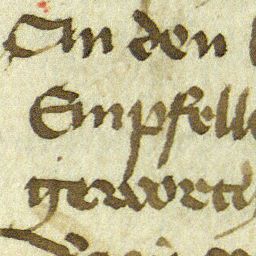 An den
Empfelle
geworte